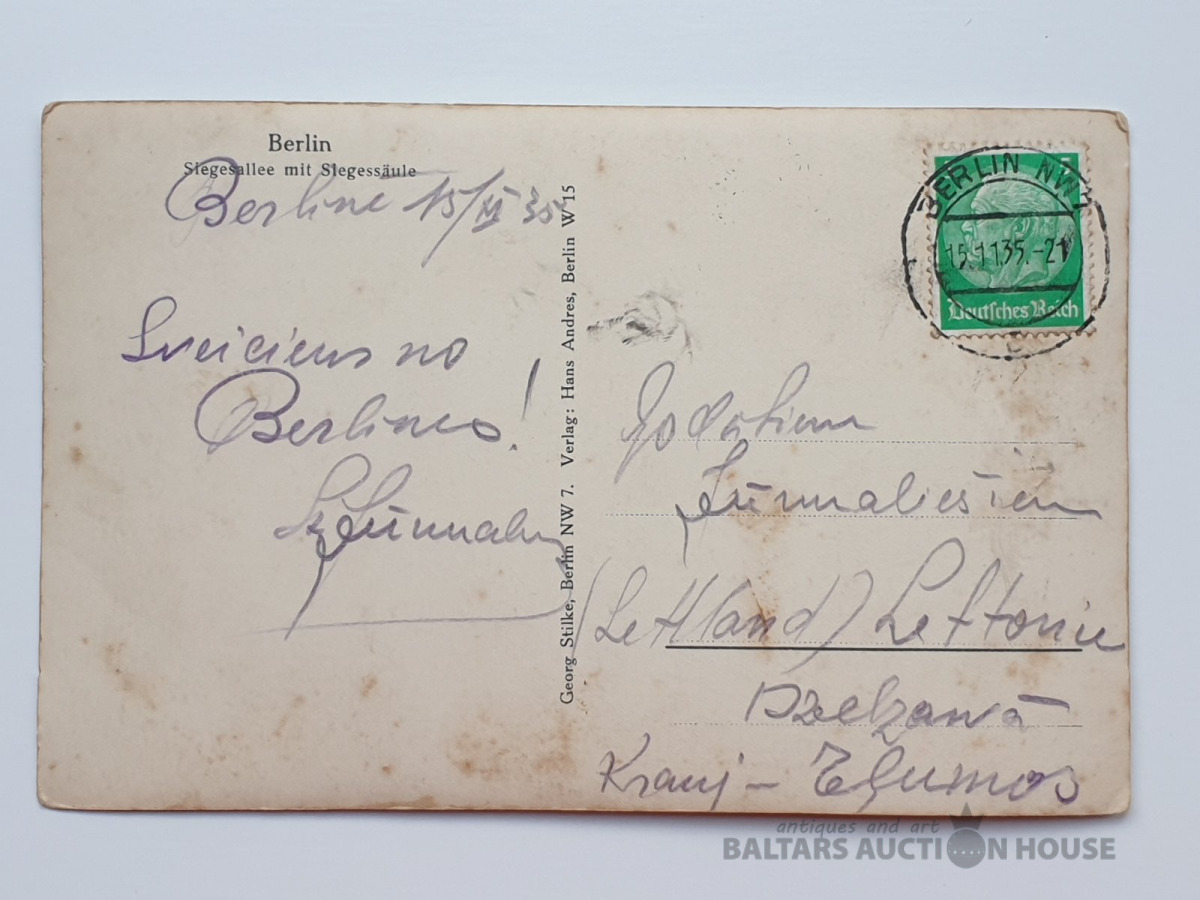 Berlin
Siegesallee mit Siegessäule
Berlinē 15/XI 35
Sveiciens no
Berlines!
Georg Stilke, Berlin NW 7. Verlag: Hans Andres, Berlin W 15
BERLIN NW
15.11.35.-21
Deutsches Reich
Godātiem
(Lettland) Lettonie
Dzelzavā
antiques and art
BALTARS AUCTION HOUSE